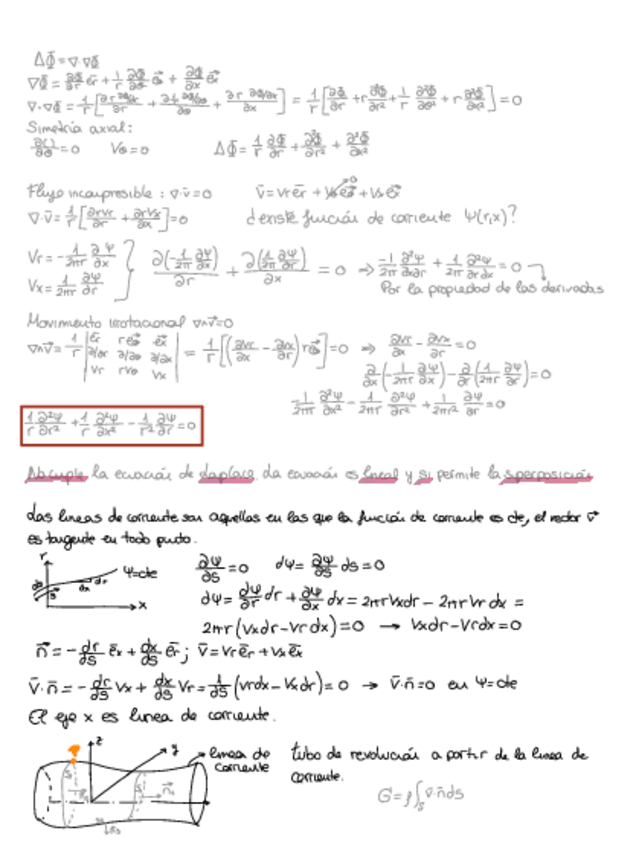 ΔΦ̄ = ∇·∇Φ̄
∇Φ̄ = ∂Φ̄/∂r ēr + 1/r ∂Φ̄/∂θ e⃗θ + ∂Φ̄/∂x e⃗
∇·∇Φ̄ = 1/r [∂r ∂Φ̄/∂r/∂r + ∂ 1/r ∂Φ̄/∂θ/∂θ + ∂r ∂Φ̄/∂x/∂x] = 1/r [∂Φ̄/∂r + r ∂²Φ̄/∂r² + 1/r ∂²Φ̄/∂θ² + r ∂²Φ̄/∂x²] = 0
Simetría axial:
∂( )/∂θ = 0 Vθ = 0 ΔΦ̄ = 1/r ∂Φ̄/∂r + ∂²Φ̄/∂r² + ∂²Φ̄/∂x²
Flujo incompresible : ∇·v̄ = 0 v̄ = Vr ēr + Vθ e⃗θ + Vx e⃗x
∇·v̄ = 1/r [∂rVr/∂r + ∂rVx/∂x] = 0 ¿existe función de corriente Ψ(r,x)?
Vr = -1/2πr ∂Ψ/∂x
Vx = 1/2πr ∂Ψ/∂r } ∂(-1/2π ∂Ψ/∂x)/∂r + ∂(1/2π ∂Ψ/∂r)/∂x = 0 ⇒ -1/2π ∂²Ψ/∂x∂r + 1/2π ∂²Ψ/∂r∂x = 0
Por la propiedad de las derivadas
Movimiento irrotacional ∇∧v⃗ = 0
∇∧v⃗ = 1/r | ēr r e⃗θ e⃗x ∂/∂r ∂/∂θ ∂/∂x Vr rVθ Vx | = 1/r [(∂Vr/∂x - ∂Vx/∂r) r e⃗θ] = 0 ⇒ ∂Vr/∂x - ∂Vx/∂r = 0
∂/∂x (-1/2πr ∂Ψ/∂x) - ∂/∂r (1/2πr ∂Ψ/∂r) = 0
-1/2πr ∂²Ψ/∂x² - 1/2πr ∂²Ψ/∂r² + 1/2πr² ∂Ψ/∂r = 0
1/r ∂²Ψ/∂r² + 1/r ∂²Ψ/∂x² - 1/r² ∂Ψ/∂r = 0
No cumple la ecuación de Laplace. La ecuación es lineal y sí permite la superposición
Las lineas de corriente son aquellas en las que la función de corriente es cte, el vector v⃗
es tangente en todo punto.
r ds dx dr Ψ=cte x
∂Ψ/∂s = 0 dΨ = ∂Ψ/∂s ds = 0
dΨ = ∂Ψ/∂r dr + ∂Ψ/∂x dx = 2πrVxdr - 2πrVrdx =
2πr(Vxdr - Vrdx) = 0 → Vxdr - Vrdx = 0
n⃗ = -dr/ds ēx + dx/ds ēr ; v̄ = Vr ēr + Vx ēx
v̄·n̄ = -dr/ds Vx + dx/ds Vr = 1/ds (Vrdx - Vxdr) = 0 → v̄·n̄ = 0 en Ψ=cte
El eje x es linea de corriente.
z y linea de corriente
tubo de revolución a partir de la linea de
corriente.
G = ρ∫s v̄·n̄ ds